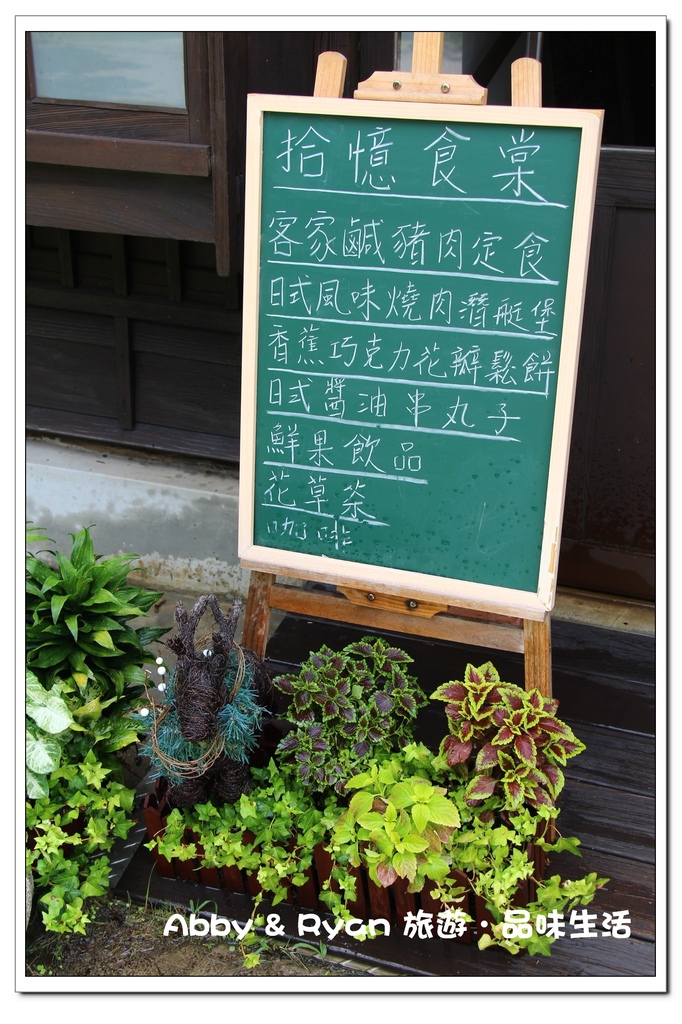 拾憶食棠
客家鹹豬肉定食
日式風味燒肉潛艇堡
香蕉巧克力花瓣鬆餅
日式醬油串丸子
鮮果飲品
花草茶
咖啡
Abby & Ryan 旅遊・品味生活